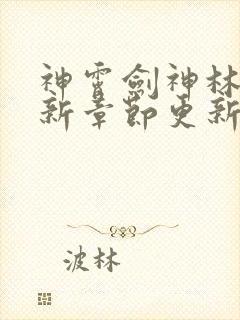 神霄劍神林
新章節更新
波林